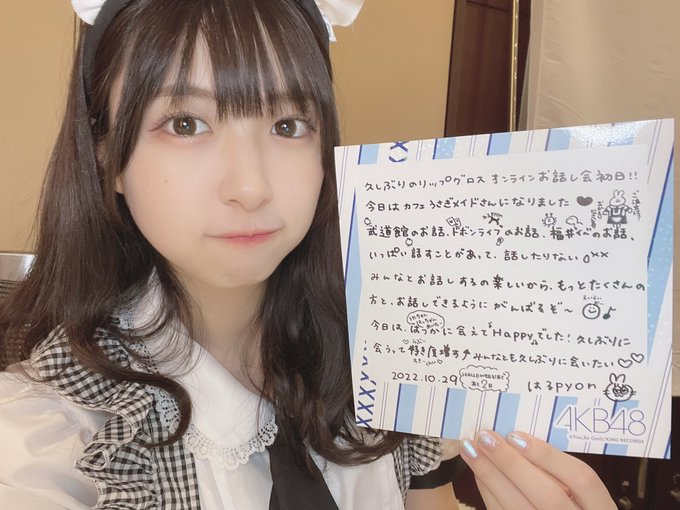 久しぶりのリップグロス オンラインお話し会初日!!
今日はカフェうさぎメイドさんになりました♥
武道館のお話、ドボンライブのお話、福井イベのお話、
いっぱい話すことがあって、話したりない
みんなとお話しするの楽しいから、もっとたくさんの
方と、お話しできるようにがんばるぞ〜
今日は、ばっかに会えてHappyでした！久しぶりに
会うって好き度増す↑みんなとも久しぶりに会いたい♡♡
2022.10.29
HALLOWEENまで
あと2日
はるpyon
AKB48
©You, Be Cool!/KING RECORDS